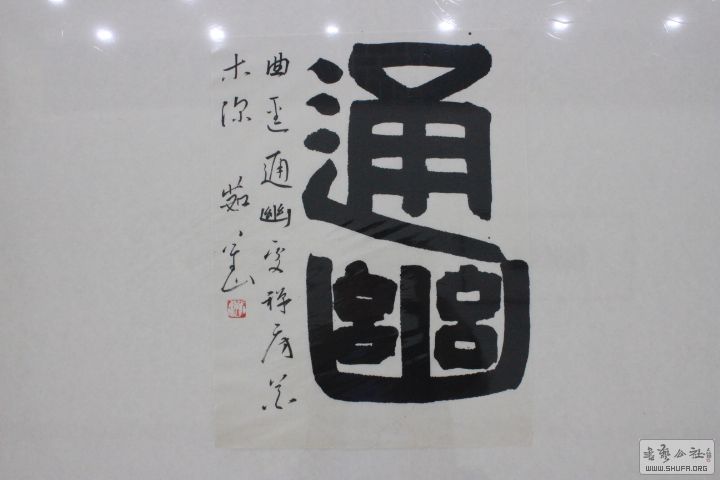 通幽
曲径通幽处禅房花
木深 茹金山
書藝公社
WWW.SHUFA.ORG